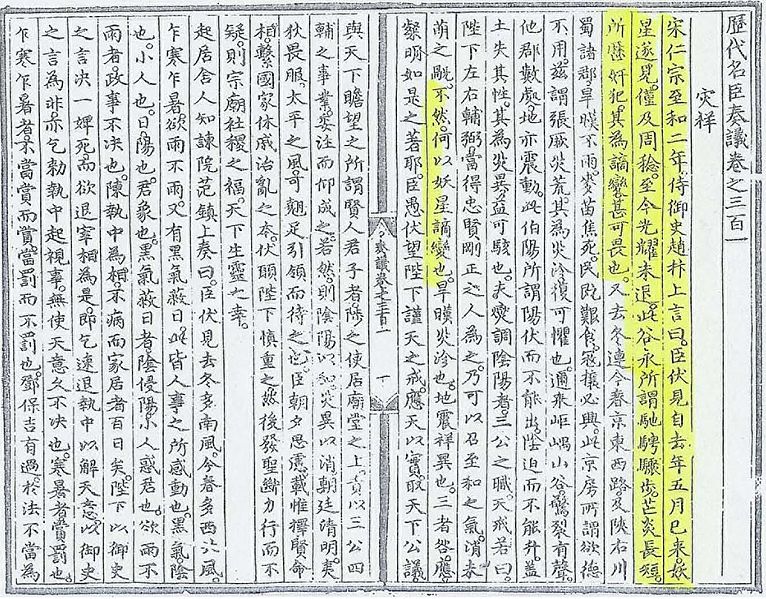 歷代名臣奏議卷之三百一
灾祥
宋仁宗至和二年侍御史趙抃上言曰臣伏見自去年五月已来妖
星遂見僅及周稔至今光耀未退此谷永所謂馳騁驟步芒炎長短
所歷奸犯其為謫變甚可畏也又去冬連今春京東西路及陜右川
蜀諸郡旱暵不雨麥苗焦死民既艱食冦攘必興此京房所謂欲德
不用兹謂張厥灾荒其為灾沴復可懼也邇来岠嵎山谷驚裂有聲
他郡數處地亦震動此伯陽所謂陽伏而不能出陰迫而不能升盖
土失其性其為灾異益可駭也夫燮調陰陽者三公之職天戒若曰
陛下左右輔弼當得忠賢剛正之人為之乃可以召至和之氣消未
萌之眚不然何以妖星謫變也旱暵灾沴也地震祥異也三者咎應
粲明如是之著耶臣愚伏望陛下謹天之戒應天以實取天下公議
奏議卷之三百一
一
與天下瞻望之所謂賢人君子者陟之使居廟堂之上責以三公四
輔之事業委注而仰成之若然則陰陽以和灾異以消朝廷清明夷
狄畏服太平之風可翹足引領而待之也臣朝夕思慮載惟擇賢命
相繫國家休戚治亂之本伏願陛下慎重之然後發聖斷力行而不
疑則宗廟社稷之福天下生靈之幸
起居舍人知諫院范鎮上奏曰臣伏見去冬多南風今春多西北風
乍寒乍暑欲雨不雨又有黑氣蔽日此皆人事之所感動也黑氣陰
也小人也日陽也君象也黑氣蔽日者陰侵陽小人惑君也欲雨不
雨者政事不决也陳執中為相不病而家居者百日矣陛下以御史
之言决一婢死而欲退宰相為是即乞速退執中以解天意以御史
之言為非亦乞勑執中起視事無使天意久不决也寒暑者賞罰也
乍寒乍暑者不當賞而賞當罰而不罰也鄧保吉有過於法不當為